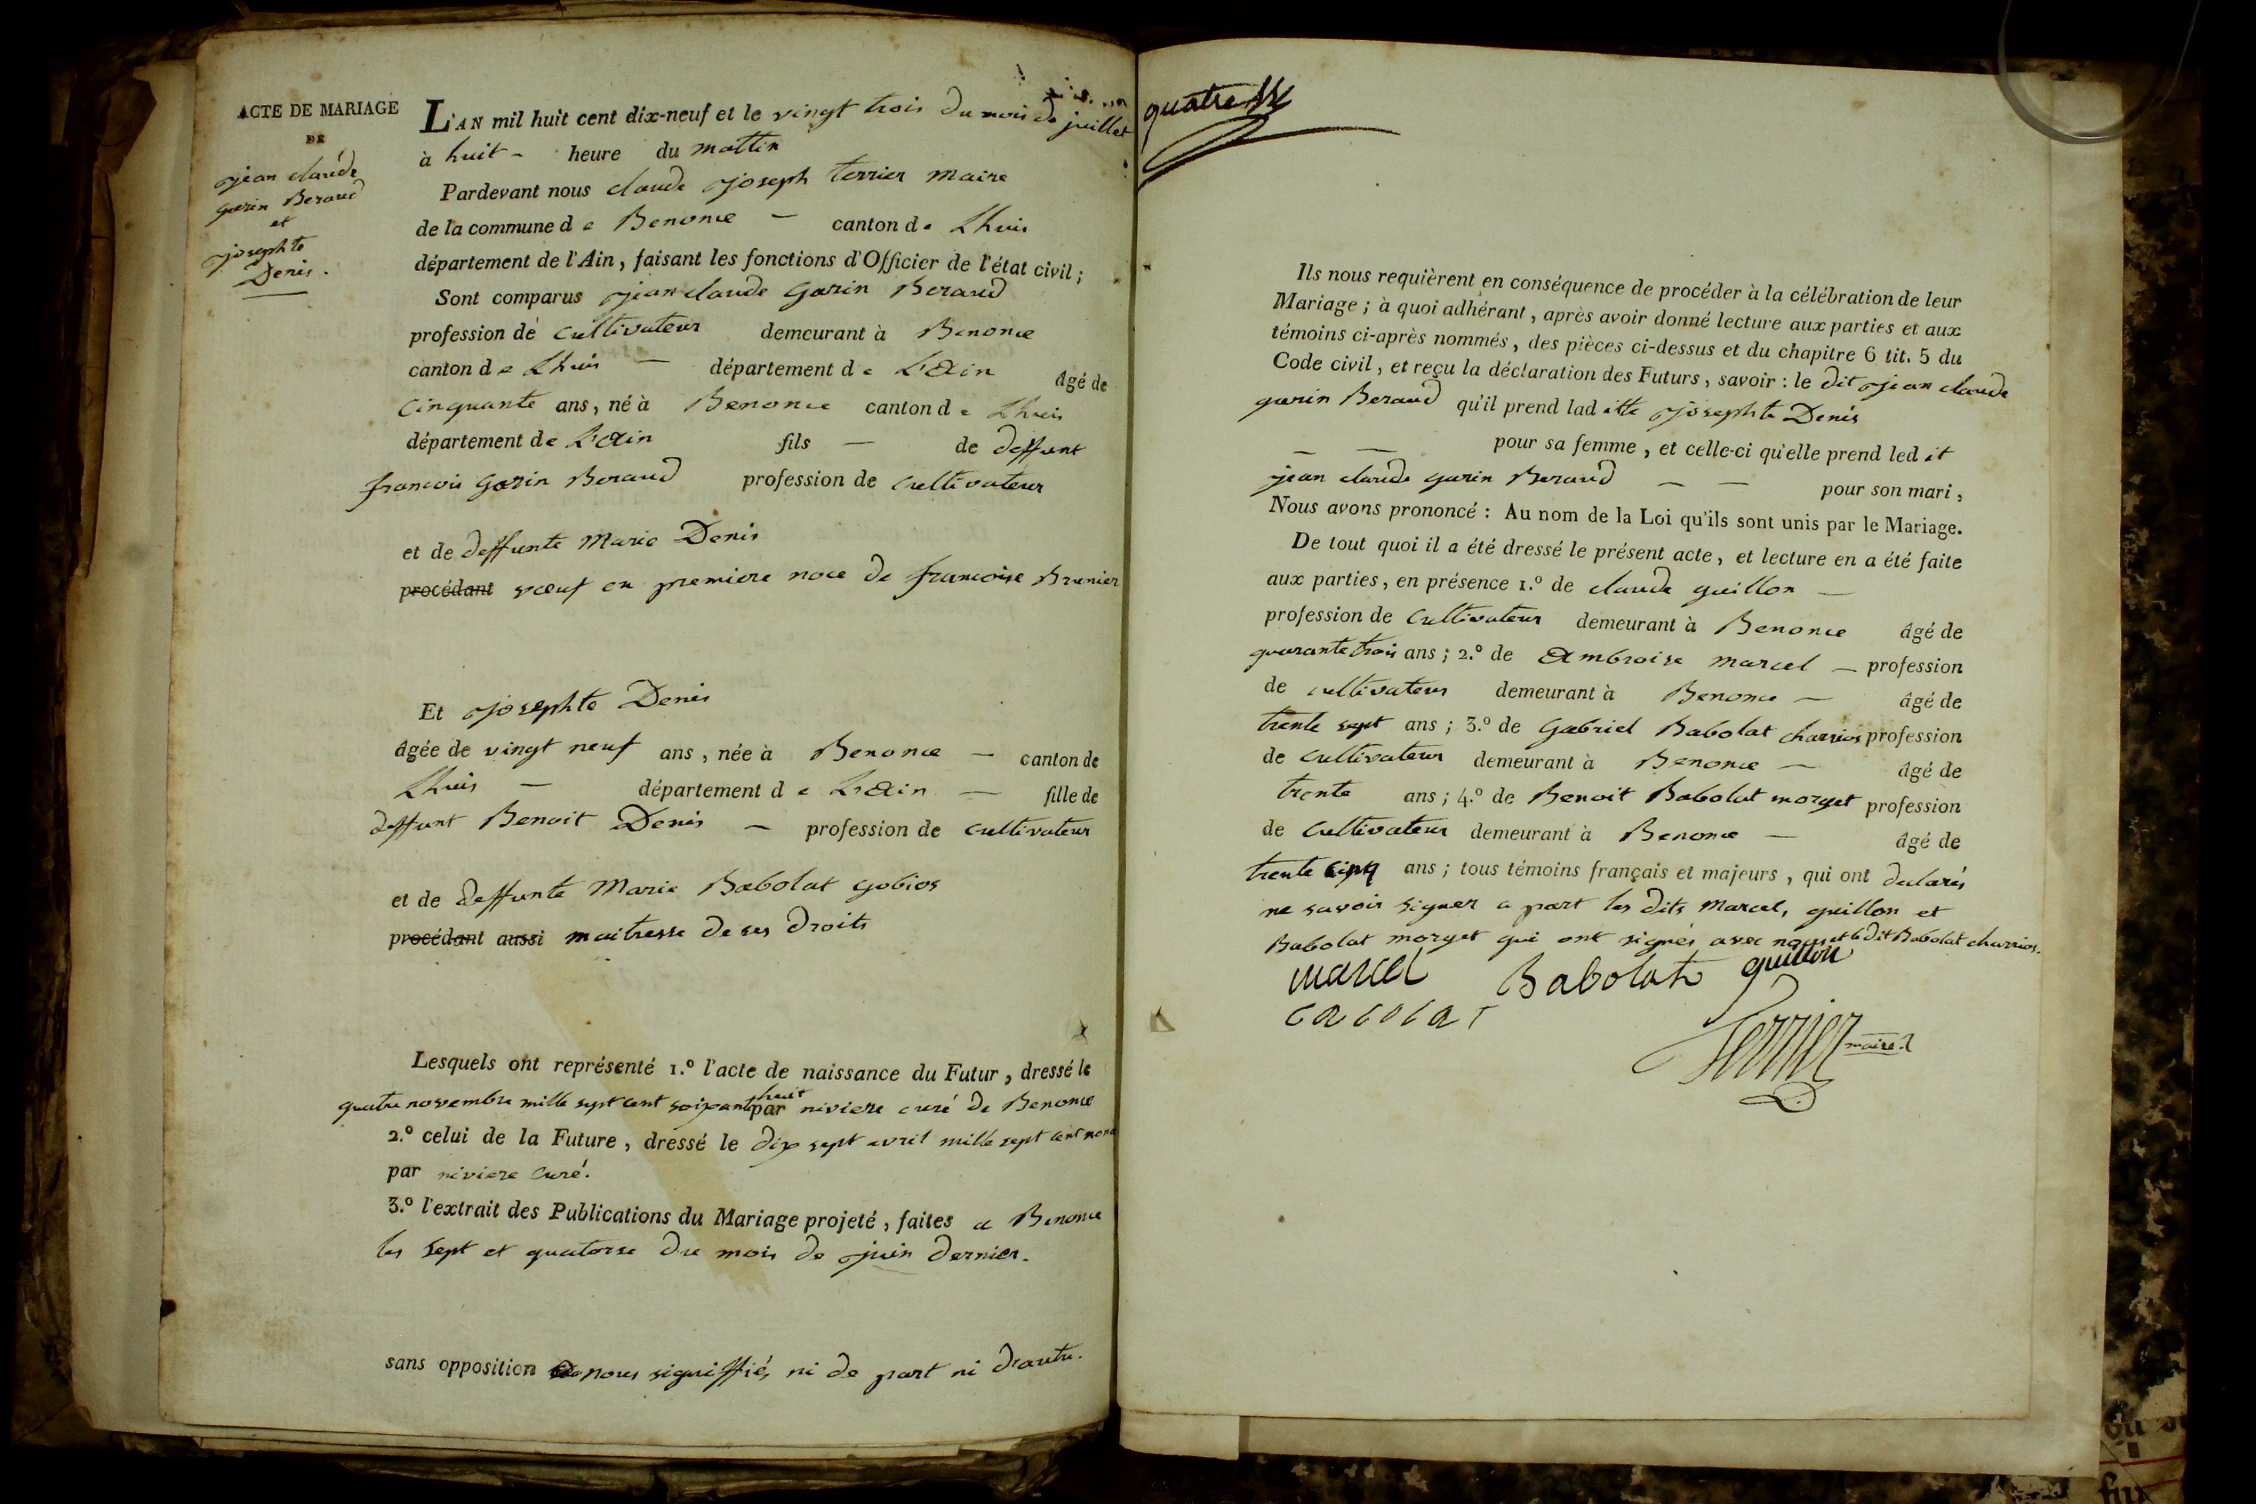 ACTE DE MARIAGE
DE
jean claude
garin Beraud
et
josephte
Denis.
L'AN mil huit cent dix-neuf et le vingt trois du mois de juillet
à huit - heure du mattin
Pardevant nous claude joseph terrier maire
de la commune de Benonce - canton de Lhuis
département de l'Ain, faisant les fonctions d'Officier de l'état civil;
Sont comparus jean claude garin Beraud
profession de cultivateur demeurant à Benonce
canton de Lhuis - département de L'Ain âgé de
cinquante ans, né à Benonce canton de Lhuis
département de L'Ain fils - de deffunt
francois garin Beraud profession de cultivateur
et de deffunte Marie Denis
procédant vœuf en premiere noce de francoise Brunier
Et josephte Denis
âgée de vingt neuf ans, née à Benonce - canton de
Lhuis - département de L'Ain - fille de
deffunt Benoit Denis - profession de cultivateur
et de deffunte Marie Babolat gobios
procédant aussi maitresse de ses droits
Lesquels ont représenté 1.º l'acte de naissance du Futur, dressé le
quatre novembre mille sept cent soixante huit par niviere curé de Benonce
2.º celui de la Future, dressé le dix sept avril mille sept cent
par niviere curé.
3.º l'extrait des Publications du Mariage projeté, faites a Benonce
les sept et quatorse du mois de juin dernier.
sans opposition nous signiffiés ni de part ni d'autre.
quatre
Ils nous requièrent en conséquence de procéder à la célébration de leur
Mariage; à quoi adhérant, après avoir donné lecture aux parties et aux
témoins ci-après nommés, des pièces ci-dessus et du chapitre 6 tit. 5 du
Code civil, et reçu la déclaration des Futurs, savoir: le dit jean claude
garin Beraud qu'il prend laditte josephte Denis
- - pour sa femme, et celle-ci qu'elle prend ledit
jean claude garin Beraud - - pour son mari,
Nous avons prononcé: Au nom de la Loi qu'ils sont unis par le Mariage.
De tout quoi il a été dressé le présent acte, et lecture en a été faite
aux parties, en présence 1.º de claude guillon -
profession de cultivateur demeurant à Benonce âgé de
quarante trois ans; 2.º de Ambroise marcel - profession
de cultivateur demeurant à Benonce - âgé de
trente sept ans; 3.º de gabriel Babolat charrios profession
de cultivateur demeurant à Benonce - âgé de
trente ans; 4.º de Benoit Babolat morget profession
de cultivateur demeurant à Benonce - âgé de
trente cinq ans; tous témoins français et majeurs, qui ont declarés
ne savoir signer a part les dits marcel, guillon et
Babolat morget qui ont signés avec nous et le dit Babolat charrios.
marcel Babolat guillon
babolat
Terrier maire